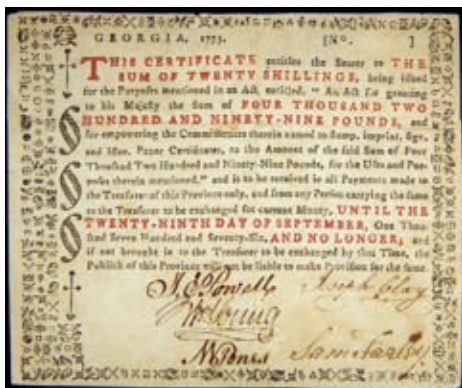 GEORGIA, 1773. [No. ]
THIS CERTIFICATE entitles the Bearer to THE
SUM OF TWENTY SHILLINGS, being issued
for the Purposes mentioned in an Act, entitled, "An Act for granting
to his Majesty the Sum of FOUR THOUSAND TWO
HUNDRED AND NINETY-NINE POUNDS, and
for empowering the Commissioners therein named to stamp, imprint, sign,
and issue, Paper Certificates, to the Amount of the said Sum of Four
Thousand Two Hundred and Ninety-Nine Pounds, for the Uses and Pur-
poses therein mentioned," and is to be received in all Payments made to
the Treasurer of this Province only, and from any Person carrying the same
to the Treasurer to be exchanged for current Money, UNTIL THE
TWENTY-NINTH DAY OF SEPTEMBER, One Thou
sand Seven Hundred and Seventy-Six, AND NO LONGER; and
if not brought in to the Treasurer to be exchanged by that Time, the
Publick of this Province will not be liable to make Provision for the same.
J. E. Powell Joseph Clay
W Young
N W Jones Sam Farley